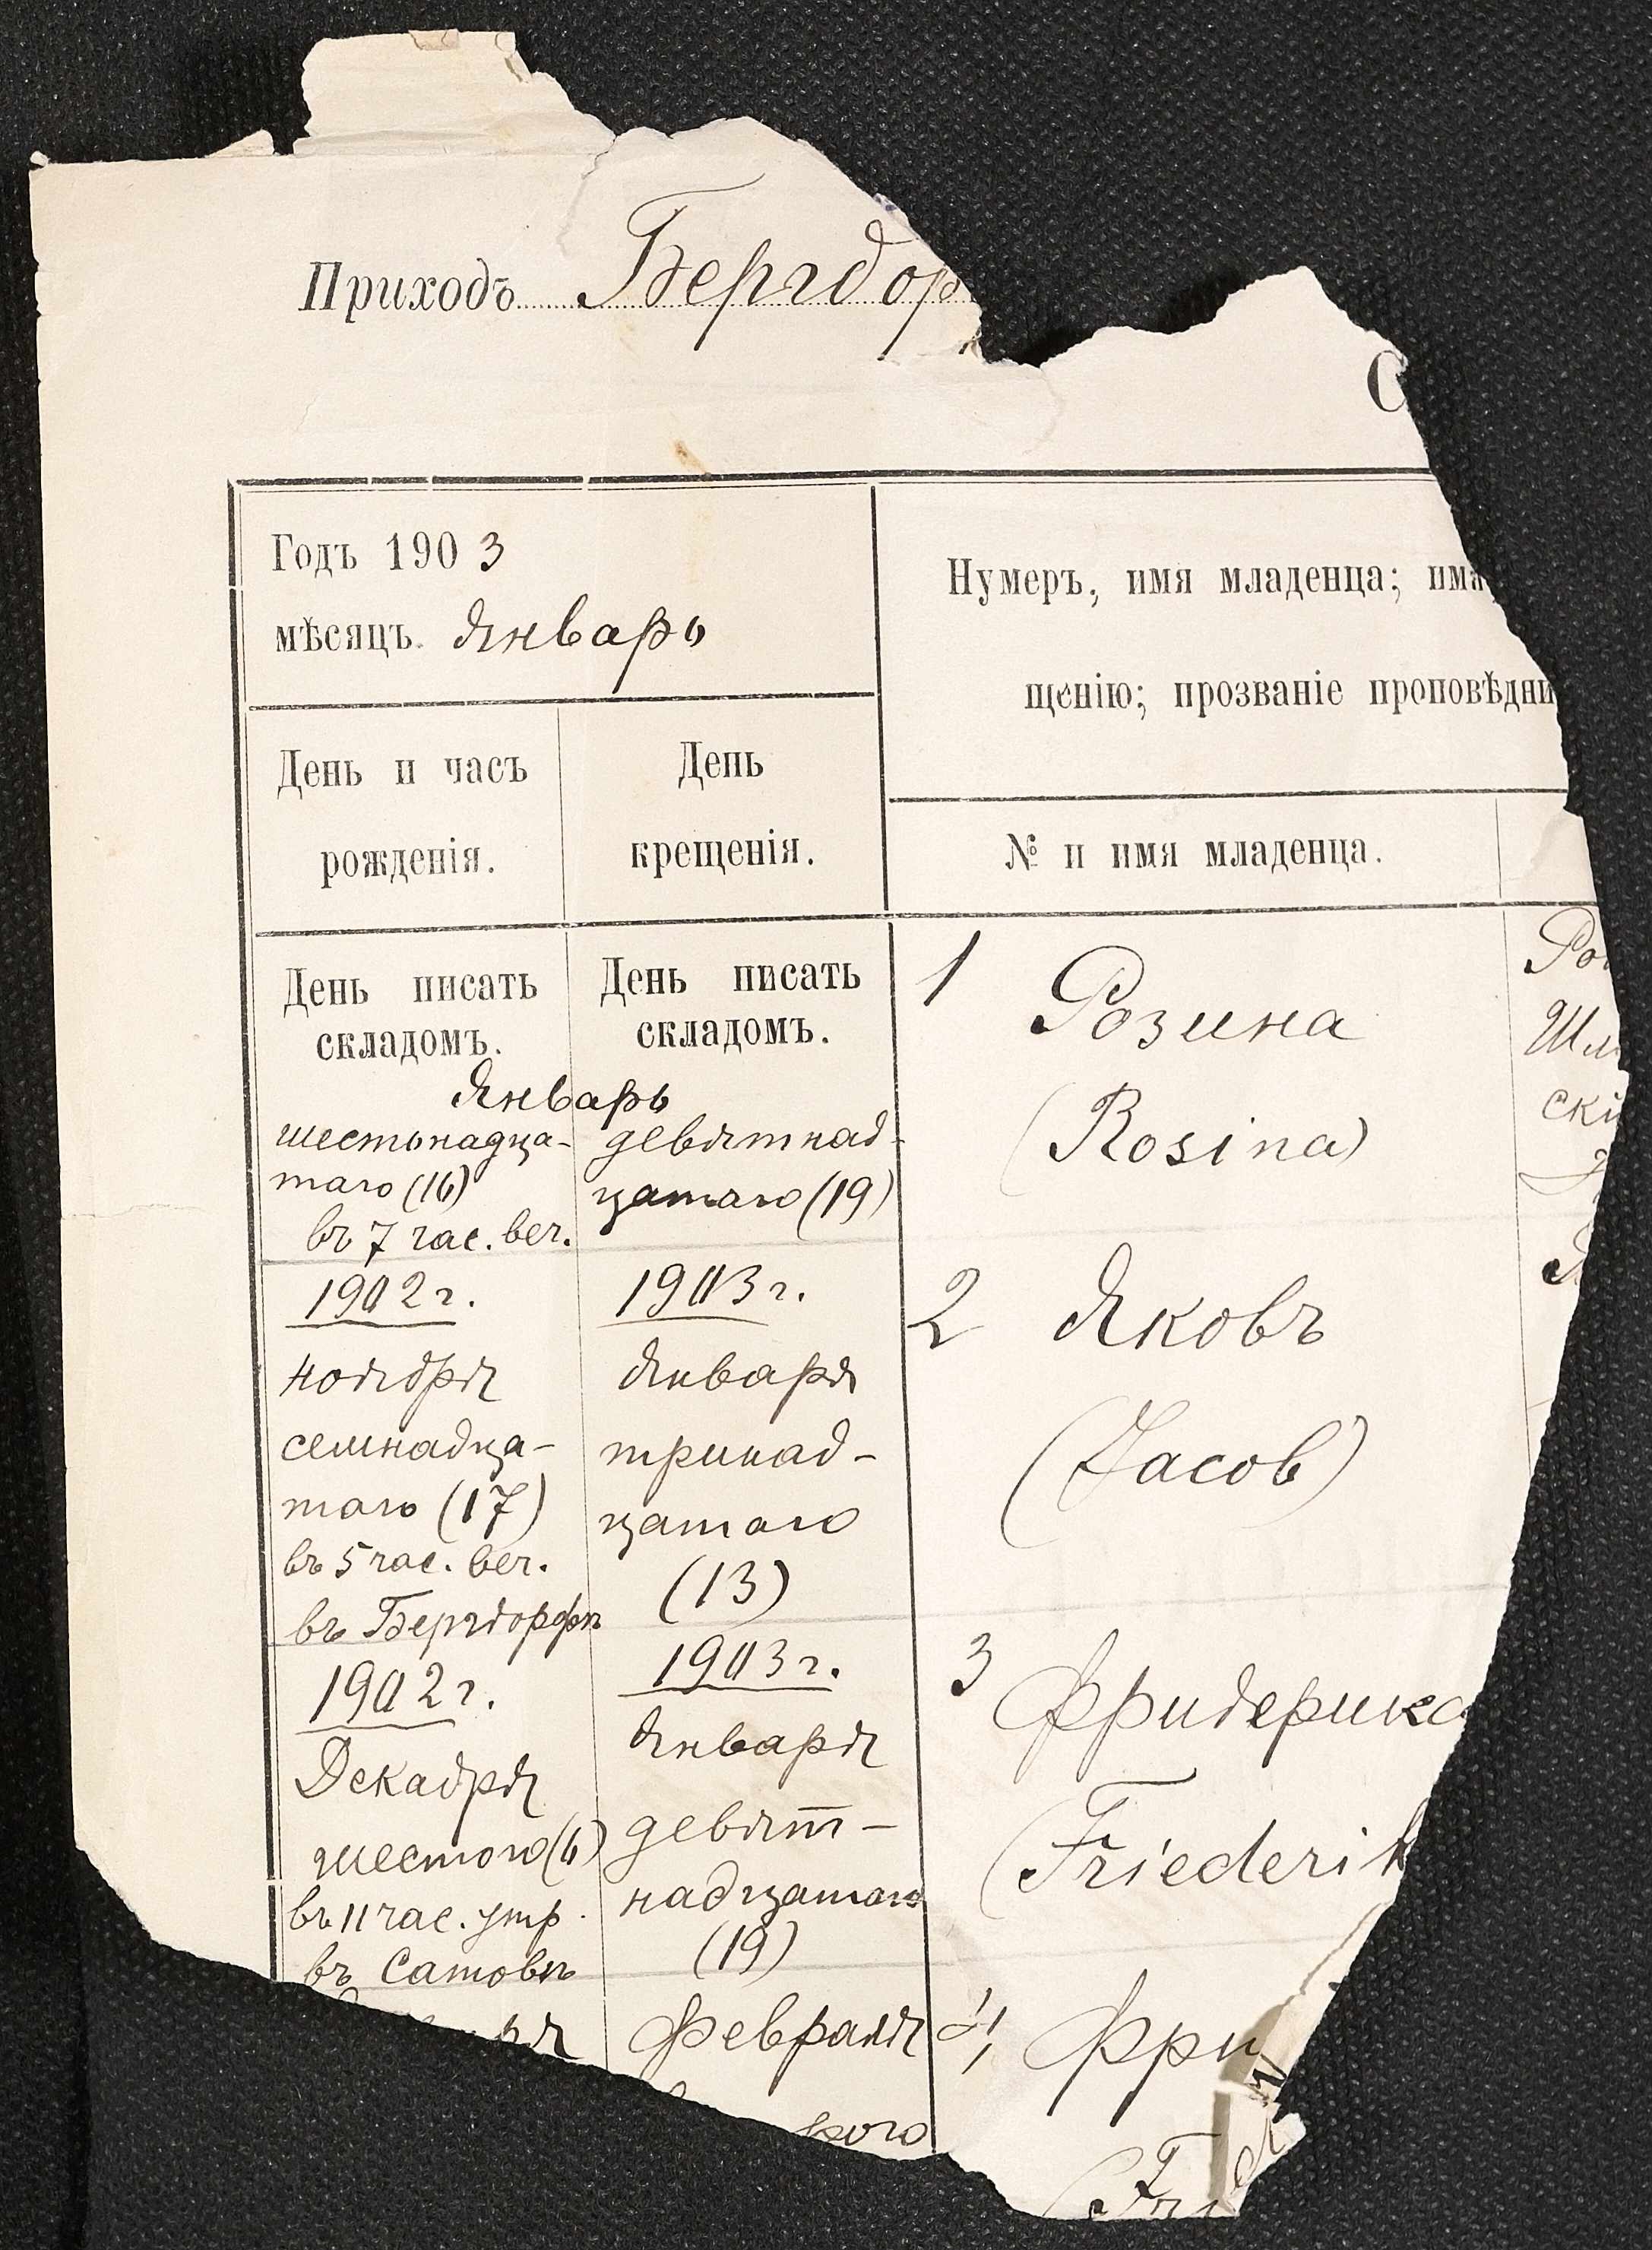 Приходъ Бергдор
С
Годъ 1903
мѣсяцъ. Январь
Нумеръ, имя младенца; имя
щенію; прозваніе проповѣдни
День и часъ
рожденія.
День
крещенія.
№ и имя младенца.
День писать
складомъ.
День писать
складомъ.
Январь
шестьнадца-
таго (16)
въ 7 час. веч.
девятнад-
цатаго (19)
1 Розина
(Rosina)
Шл
ск
1902 г.
ноября
семнадца-
таго (17)
въ 5 час. веч.
въ Бергдорфѣ
1903 г.
Января
тринад-
цатаго
(13)
2 Яковъ
(Jacob)
1902 г.
Декабря
шестого (6)
въ 11 час. утр.
въ Сатовѣ
1903 г.
Января
девят-
надцатаго
(19)
3 Фридерика
(Friederik
ря
Февраля
рого
4 Фри
(Fri